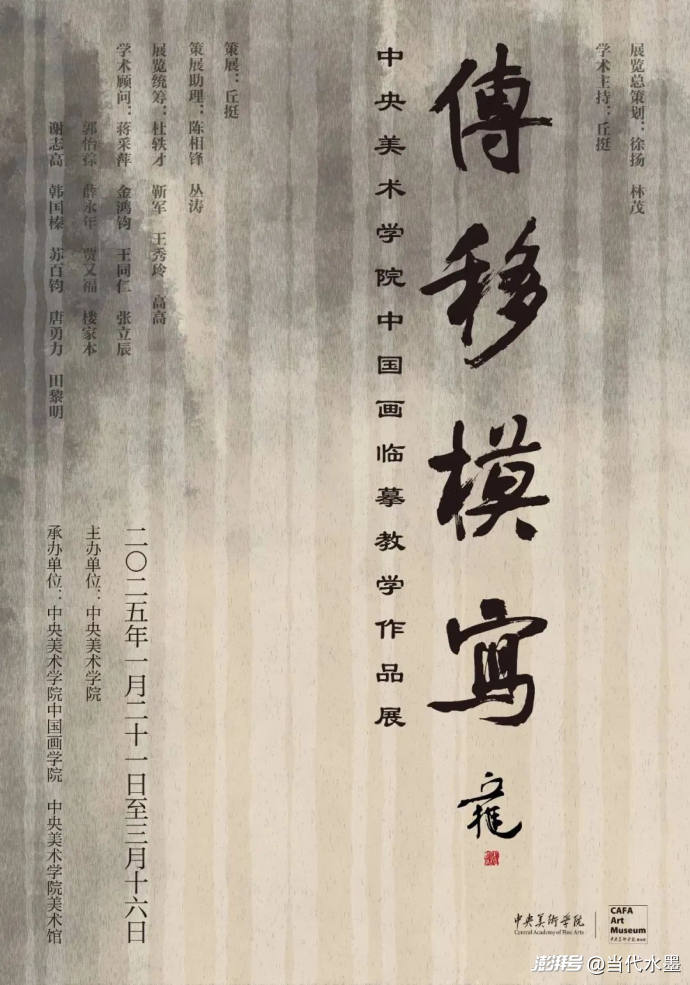 展览总策划：徐扬 林茂
学术主持：丘挺
傳移模寫
中央美术学院中国画临摹教学作品展
策展：丘挺
策展助理：陈相锋 丛涛
展览统筹：杜轶才 靳军 王秀玲 高高
学术顾问：蒋采萍 金鸿钧 王同仁 张立辰
郭怡孮 薛永年 贾又福 楼家本
谢志高 韩国榛 苏百钧 唐勇力 田黎明
二〇二五年一月二十一日至三月十六日
主办单位：中央美术学院
承办单位：中央美术学院中国画学院 中央美术学院美术馆
中央美術学院
Central Academy of Fine Arts
CAFA
Art
Museum
澎湃号@当代水墨